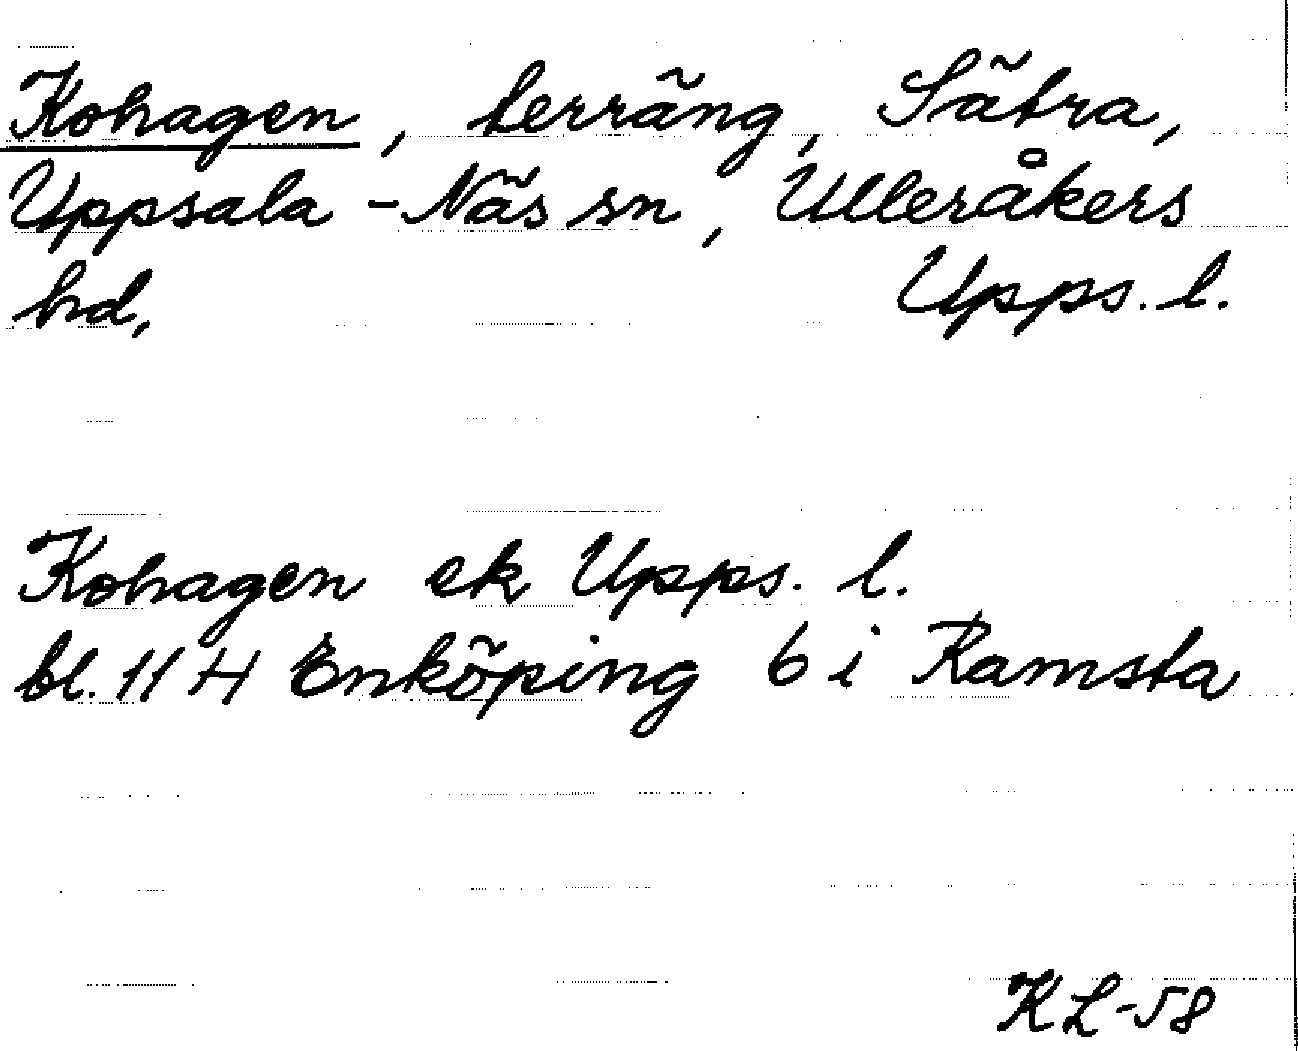 Kohagen, terräng, Sätra,
Uppsala-Näs sn, Ulleråkers
hd, Upps. l.
Kohagen ek Upps. l.
bl. 11 H Enköping 6 i Ramsta
KL-58